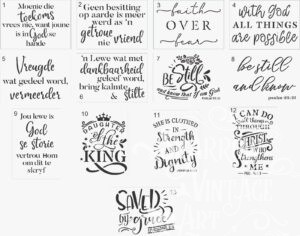 1
Moenie die
toekoms
vrees nie, want joune
is in God se
hande
2
Geen besitting
op aarde is meer
werd as 'n
getroue
vriend nie
3
faith
OVER
fear
4
with God
ALL THINGS
are possible
5
Vreugde
wat gedeel word,
vermeerder
6
'n Lewe wat met
dankbaarheid
geleef word,
bring kalmte
& stilte
7
BE Still
and know that I am God
8
be still
and know
9
Jou lewe is
God
se storie
vertrou Hom
om dit te
skryf
10
DAUGHTER
OF THE
KING
11
SHE IS CLOTHED
IN
Strength
AND
Dignity
12
I CAN DO
all things
THROUGH
CHRIST
WHO
Strengthens
ME
13
SAVED
by grace